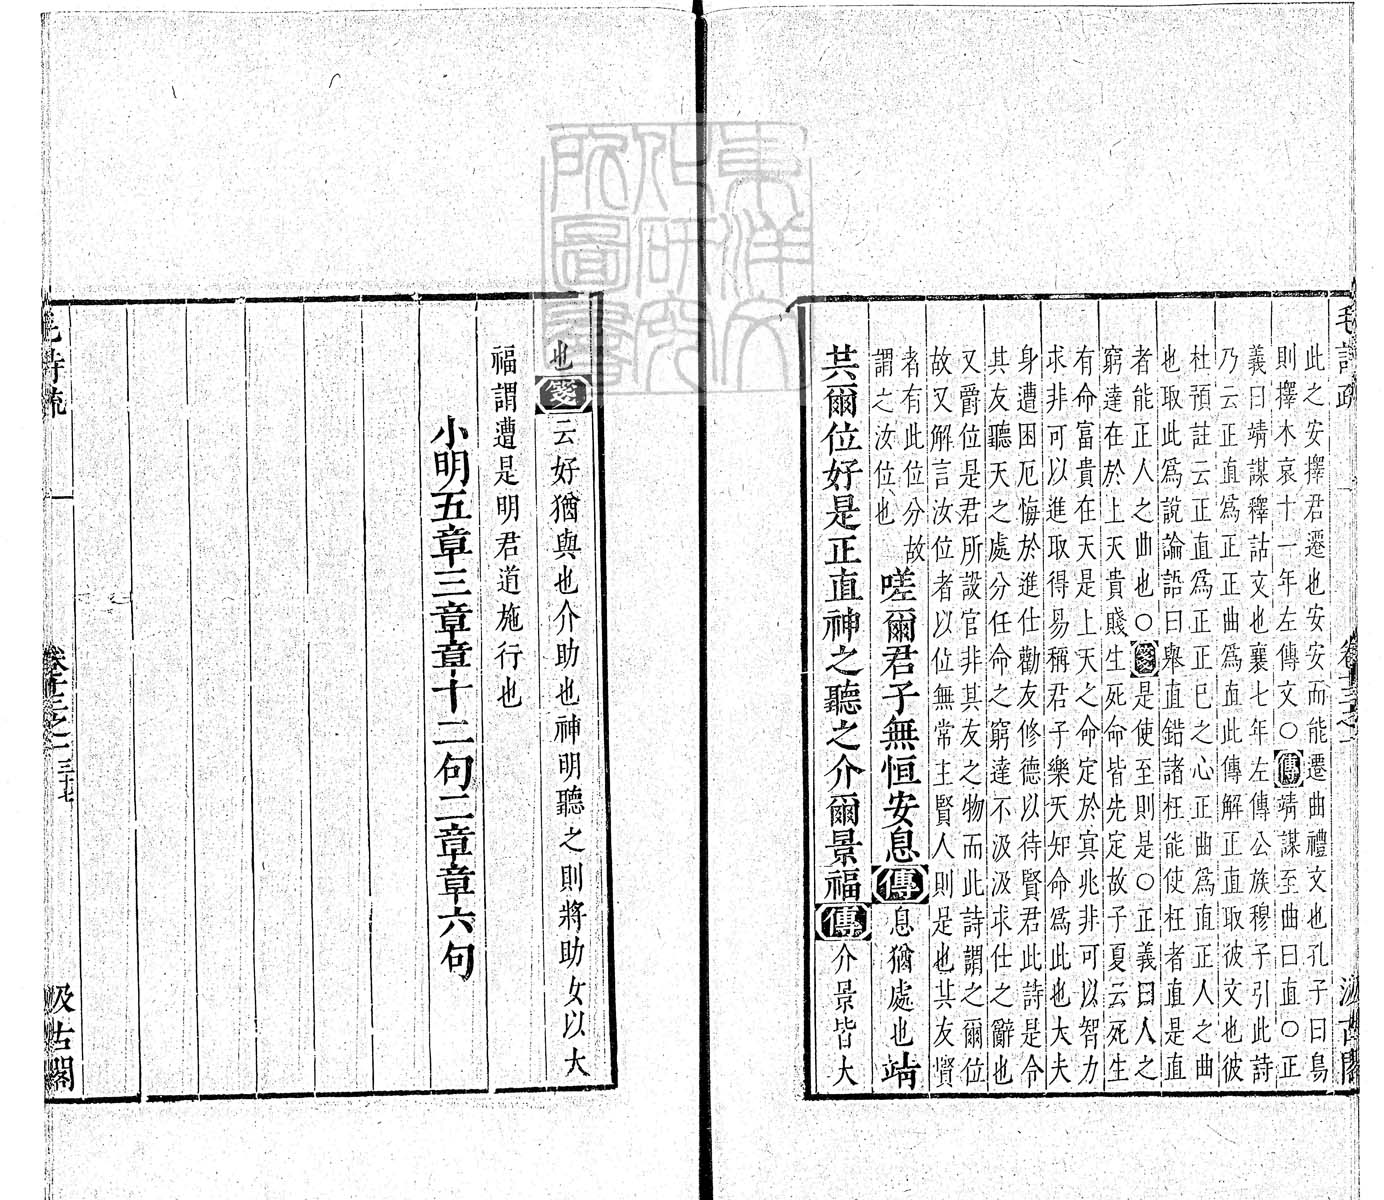 毛詩疏 卷十三之一 汲古閣
此之安擇君遷也安安而能遷曲禮文也孔子曰鳥
則擇木哀十一年左傳文○傳靖謀至曲曰直○正
義曰靖謀釋詁文也襄七年左傳公族穆子引此詩
乃云正直爲正正曲爲直此傳解正直取彼文也彼
杜預註云正直爲正正巳之心正曲爲直正人之曲
也取此爲說論語曰舉直錯諸枉能使枉者直是直
者能正人之曲也○箋是使至則是○正義曰人之
窮達在於上天貴賤生死命皆先定故子夏云死生
有命富貴在天是上天之命定於冥兆非可以智力
求非可以進取得易稱君子樂天知命爲此也大夫
身遭困厄悔於進仕勸友修德以待賢君此詩是令
其友聽天之處分任命之窮達不汲汲求仕之辭也
又爵位是君所設官非其友之物而此詩謂之爾位
故又解言汝位者以位無常主賢人則是也其友賢
者有此位分故
謂之汝位也
嗟爾君子無恒安息傳息猶處也靖
共爾位好是正直神之聽之介爾景福傳介景皆大
也箋云好猶與也介助也神明聽之則將助女以大
福謂遭是明君道施行也
小明五章三章章十二句二章章六句
毛詩疏 卷十三之一 三十七 汲古閣
東洋文
化研究
所圖書